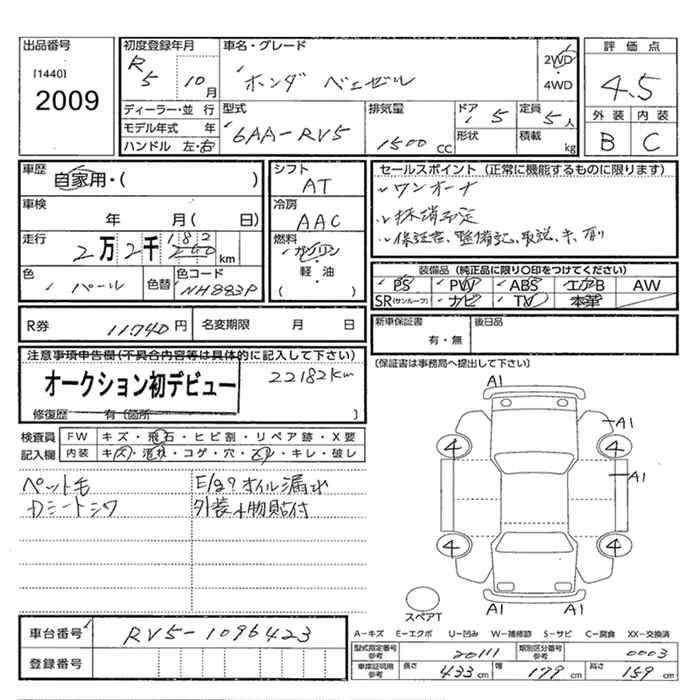 出品番号
[1440]
2009
初度登録年月
R 5 年 10 月
車名・グレード
ホンダ ベェゼル
2WD
4WD
評価点
4.5
外装 内装
B C
ディーラー・並行
モデル年式 年
ハンドル 左・右
型式
6AA-RV5
排気量
1500 CC
ドア 5
形状
定員 5 人
積載 kg
車歴
自家用・( )
車検
年 月( 日)
走行
2万2千182 km
色
パール
色替
色コード
NH883P
シフト
AT
冷房
AAC
燃料
ガソリン
軽・油
( )
セールスポイント(正常に機能するものに限ります)
ワンオーナ
保証書、整備記、取説、キ、有り
装備品(純正品に限り〇印をつけてください)
PS PW ABS エアB AW
SR(サンルーフ) ナビ TV 本革
R券 11740 円
名変期限 月 日
新車保証書
有・無
後日品
(保証書は事務局へ提出して下さい)
注意事項申告欄(不具合内容等は具体的に記入して下さい)
オークション初デビュー
22182km
修復歴 有(箇所 )
検査員 FW キズ・飛石・ヒビ割・リペア跡・X要
記入欄 内装 キズ・汚れ・コゲ・穴・スレ・キレ・破レ
ペット毛
カシートシワ
E/gオイル漏れ
外装小物貼付
A1
A1
A1
4 4
4 4
A1 A1
スペアT
車台番号 RV5-1096423
登録番号
A-キズ E-エクボ U-凹み W-補修跡 S-サビ C-腐食 XX-交換済
型式指定番号 参考 20111 類別区分番号 参考 0003
車庫証明用 参考 長さ 433 cm 幅 179 cm 高さ 159 cm